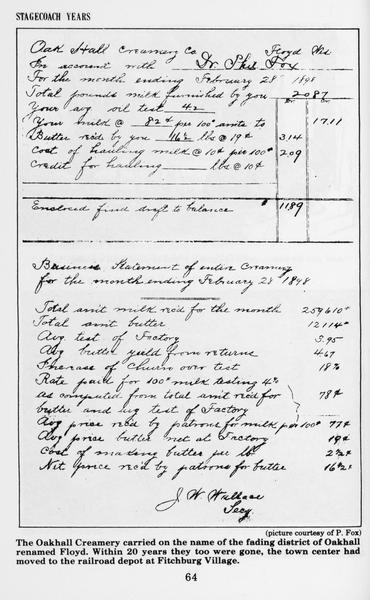 STAGECOACH YEARS
Oak Hall Creamery Co. Floyd Wis
In account with Dr. Phil Fox
For the month ending February 28 1898
Total pounds milk furnished by you 2087
Dr. Cr.
Your avg oil test 42
Your milk @ 82¢ per 100 amts to 1711
Butter rec'd by you 16½ lbs @ 19¢ 314
Cost of hauling milk @ 10¢ per 100# 209
Credit for hauling lbs @ 10¢
Enclosed find draft to balance 1189
Business Statement of entire Creamery
for the month ending February 28 1898
Total am't milk rec'd for the month 259610#
Total amt butter 12114#
Avg test of Factory 3.95
Avg butter yield from returns 4.67
Increase of Churn over test 18%
Rate paid for 100# milk testing 4%
as computed from total amt rec'd for 78¢
butter and avg test of Factory
Avg price rec'd by patrons for milk per 100# 77¢
Avg price butter net at Factory 19¢
Cost of making butter per lb 2½¢
Net price rec'd by patrons for butter 16½¢
J. W. Wallace
Secy.
(picture courtesy of P. Fox)
The Oakhall Creamery carried on the name of the fading district of Oakhall
renamed Floyd. Within 20 years they too were gone, the town center had
moved to the railroad depot at Fitchburg Village.
64